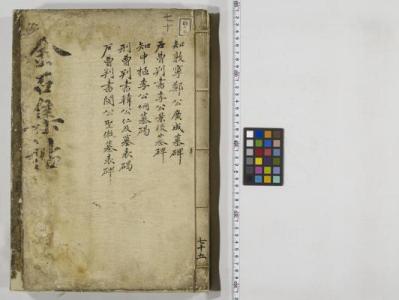 七十
知敦寧鄭公廣成墓碑
戶曹判書李公景稷墓碑
知中樞李公炯墓碣
刑曹判書韓公仁及墓表碣
戶曹判書閔公聖徽墓表碑
金石集帖
七十五